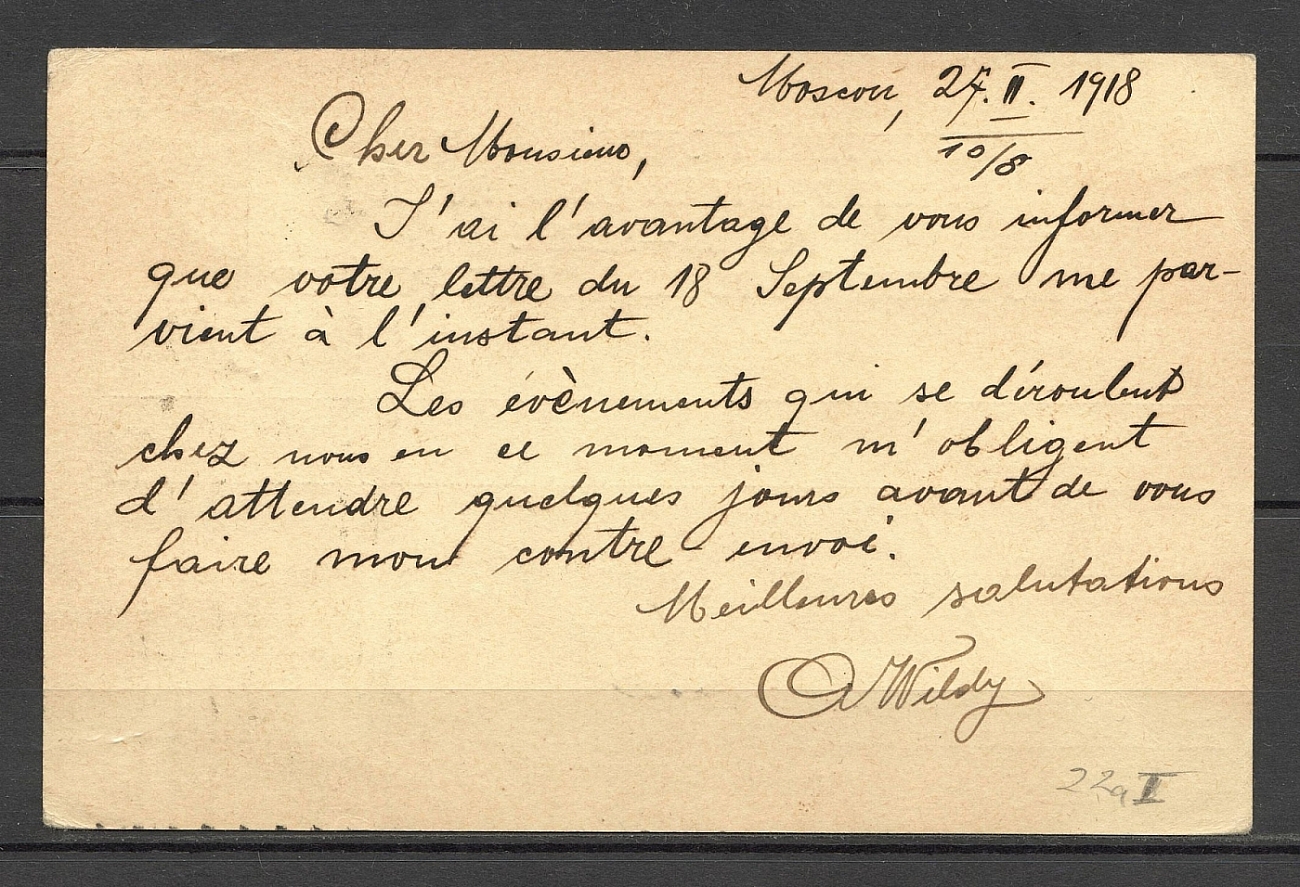 Moscou, 27. II. 1918
10/8
Cher Monsieur,
J'ai l'avantage de vous informer
que votre lettre du 18 Septembre me par-
vient à l'instant.
Les évènements qui se déroulent
chez nous en ce moment m'obligent
d'attendre quelques jours avant de vous
faire mon contre-envoi.
Meilleures salutations
A Wildy
22a II